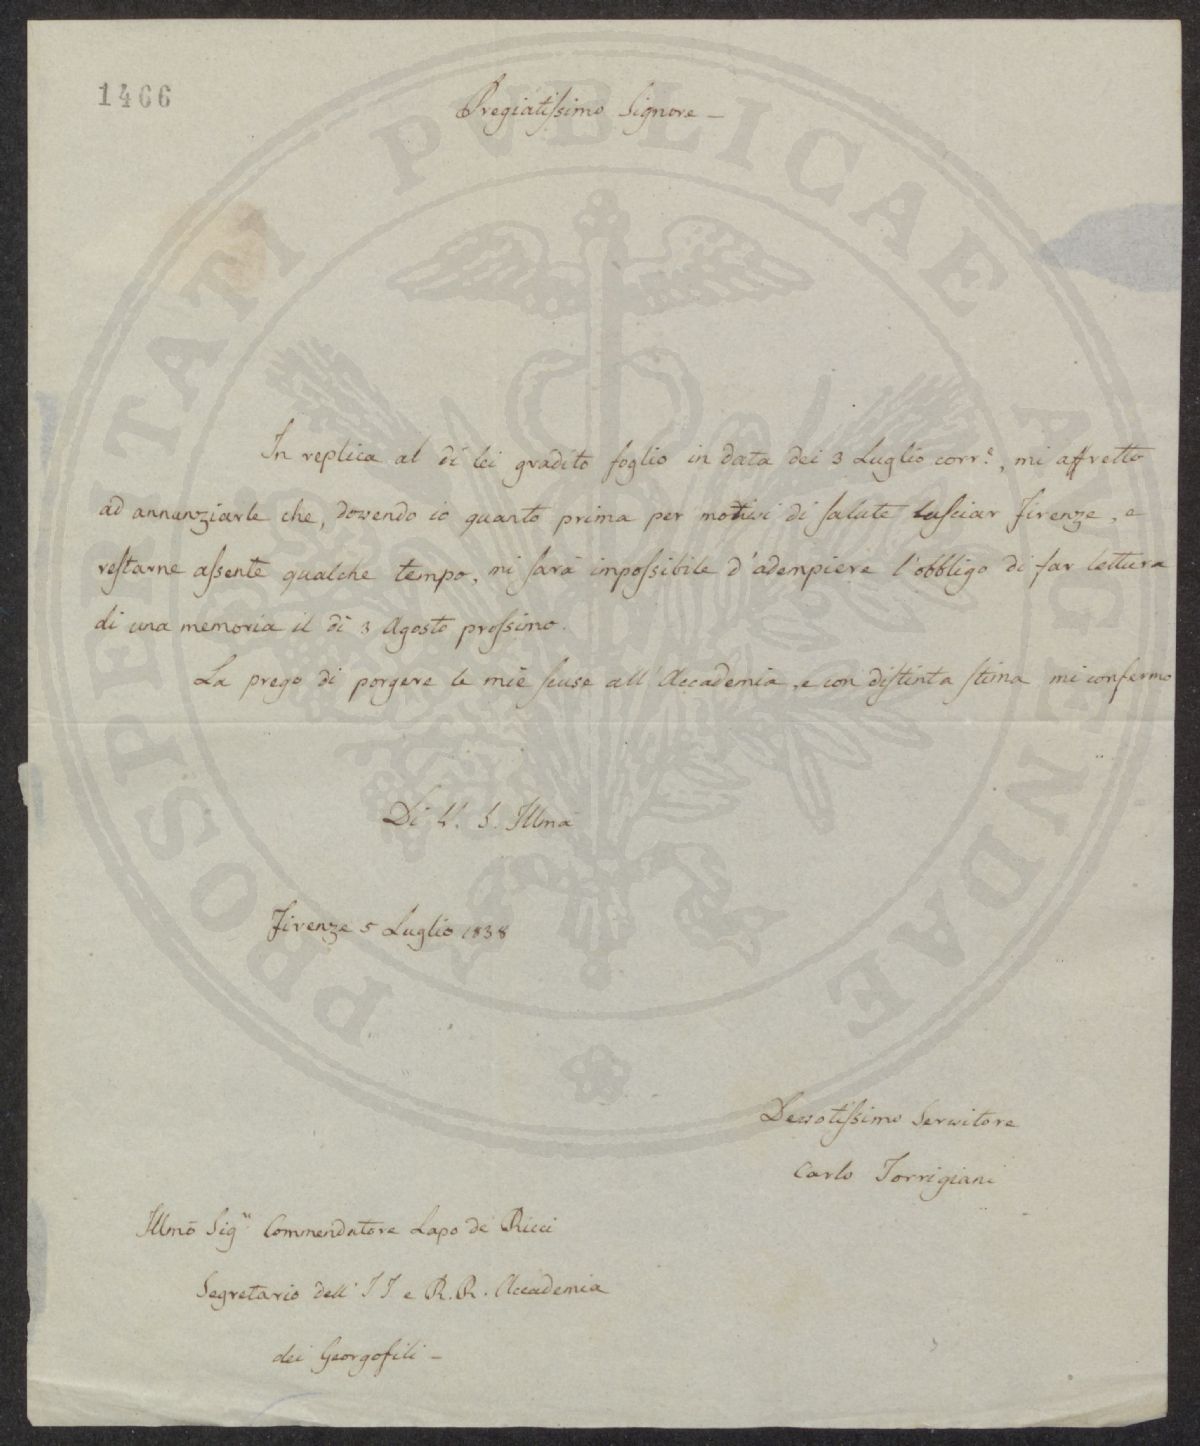 1466
Pregiatissimo Signore -
In replica al di lei gradito foglio in data dei 3 Luglio corr.e, mi affretto
ad annunziarle che, dovendo io quanto prima per motivi di salute lasciar Firenze, e
restarne assente qualche tempo, mi sarà impossibile d'adempiere l'obbligo di far lettura
di una memoria il dì 3 Agosto prossimo.
La prego di porgere le mie scuse all'Accademia, e con distinta stima mi confermo
Di V. S. Illma
Firenze 5 Luglio 1838
Devotissimo Servitore
Carlo Torrigiani
Illmo Sig.r Commendatore Lapo de Ricci
Segretario dell' I I e R. R. Accademia
dei Georgofili -
PROSPERITATI PVBLICAE AVGENDAE